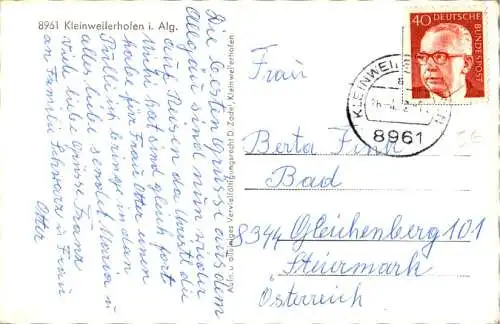 8961 Kleinweilerhofen i. Alg.
Die besten Grüsse aus dem
Allgäu sind nun wieder
aus Füssen da Wastl die
Milz hat sind gleich fort
habe für Frau Otter einen
Pulli ich bringe in dan
alles liebe sendet Maria u
viele liebe Grüsse Franz
an Familie Schwarz u Frau
Otter
Alln. u. alleiniges Vervielfältigungsrecht D. Zodel, Kleinweilerhofen
40 DEUTSCHE
BUNDESPOST
KLEINWEILER
8961
Frau
Berta Fink
Bad
8344 Gleichenberg 101
Steiermark
Österreich